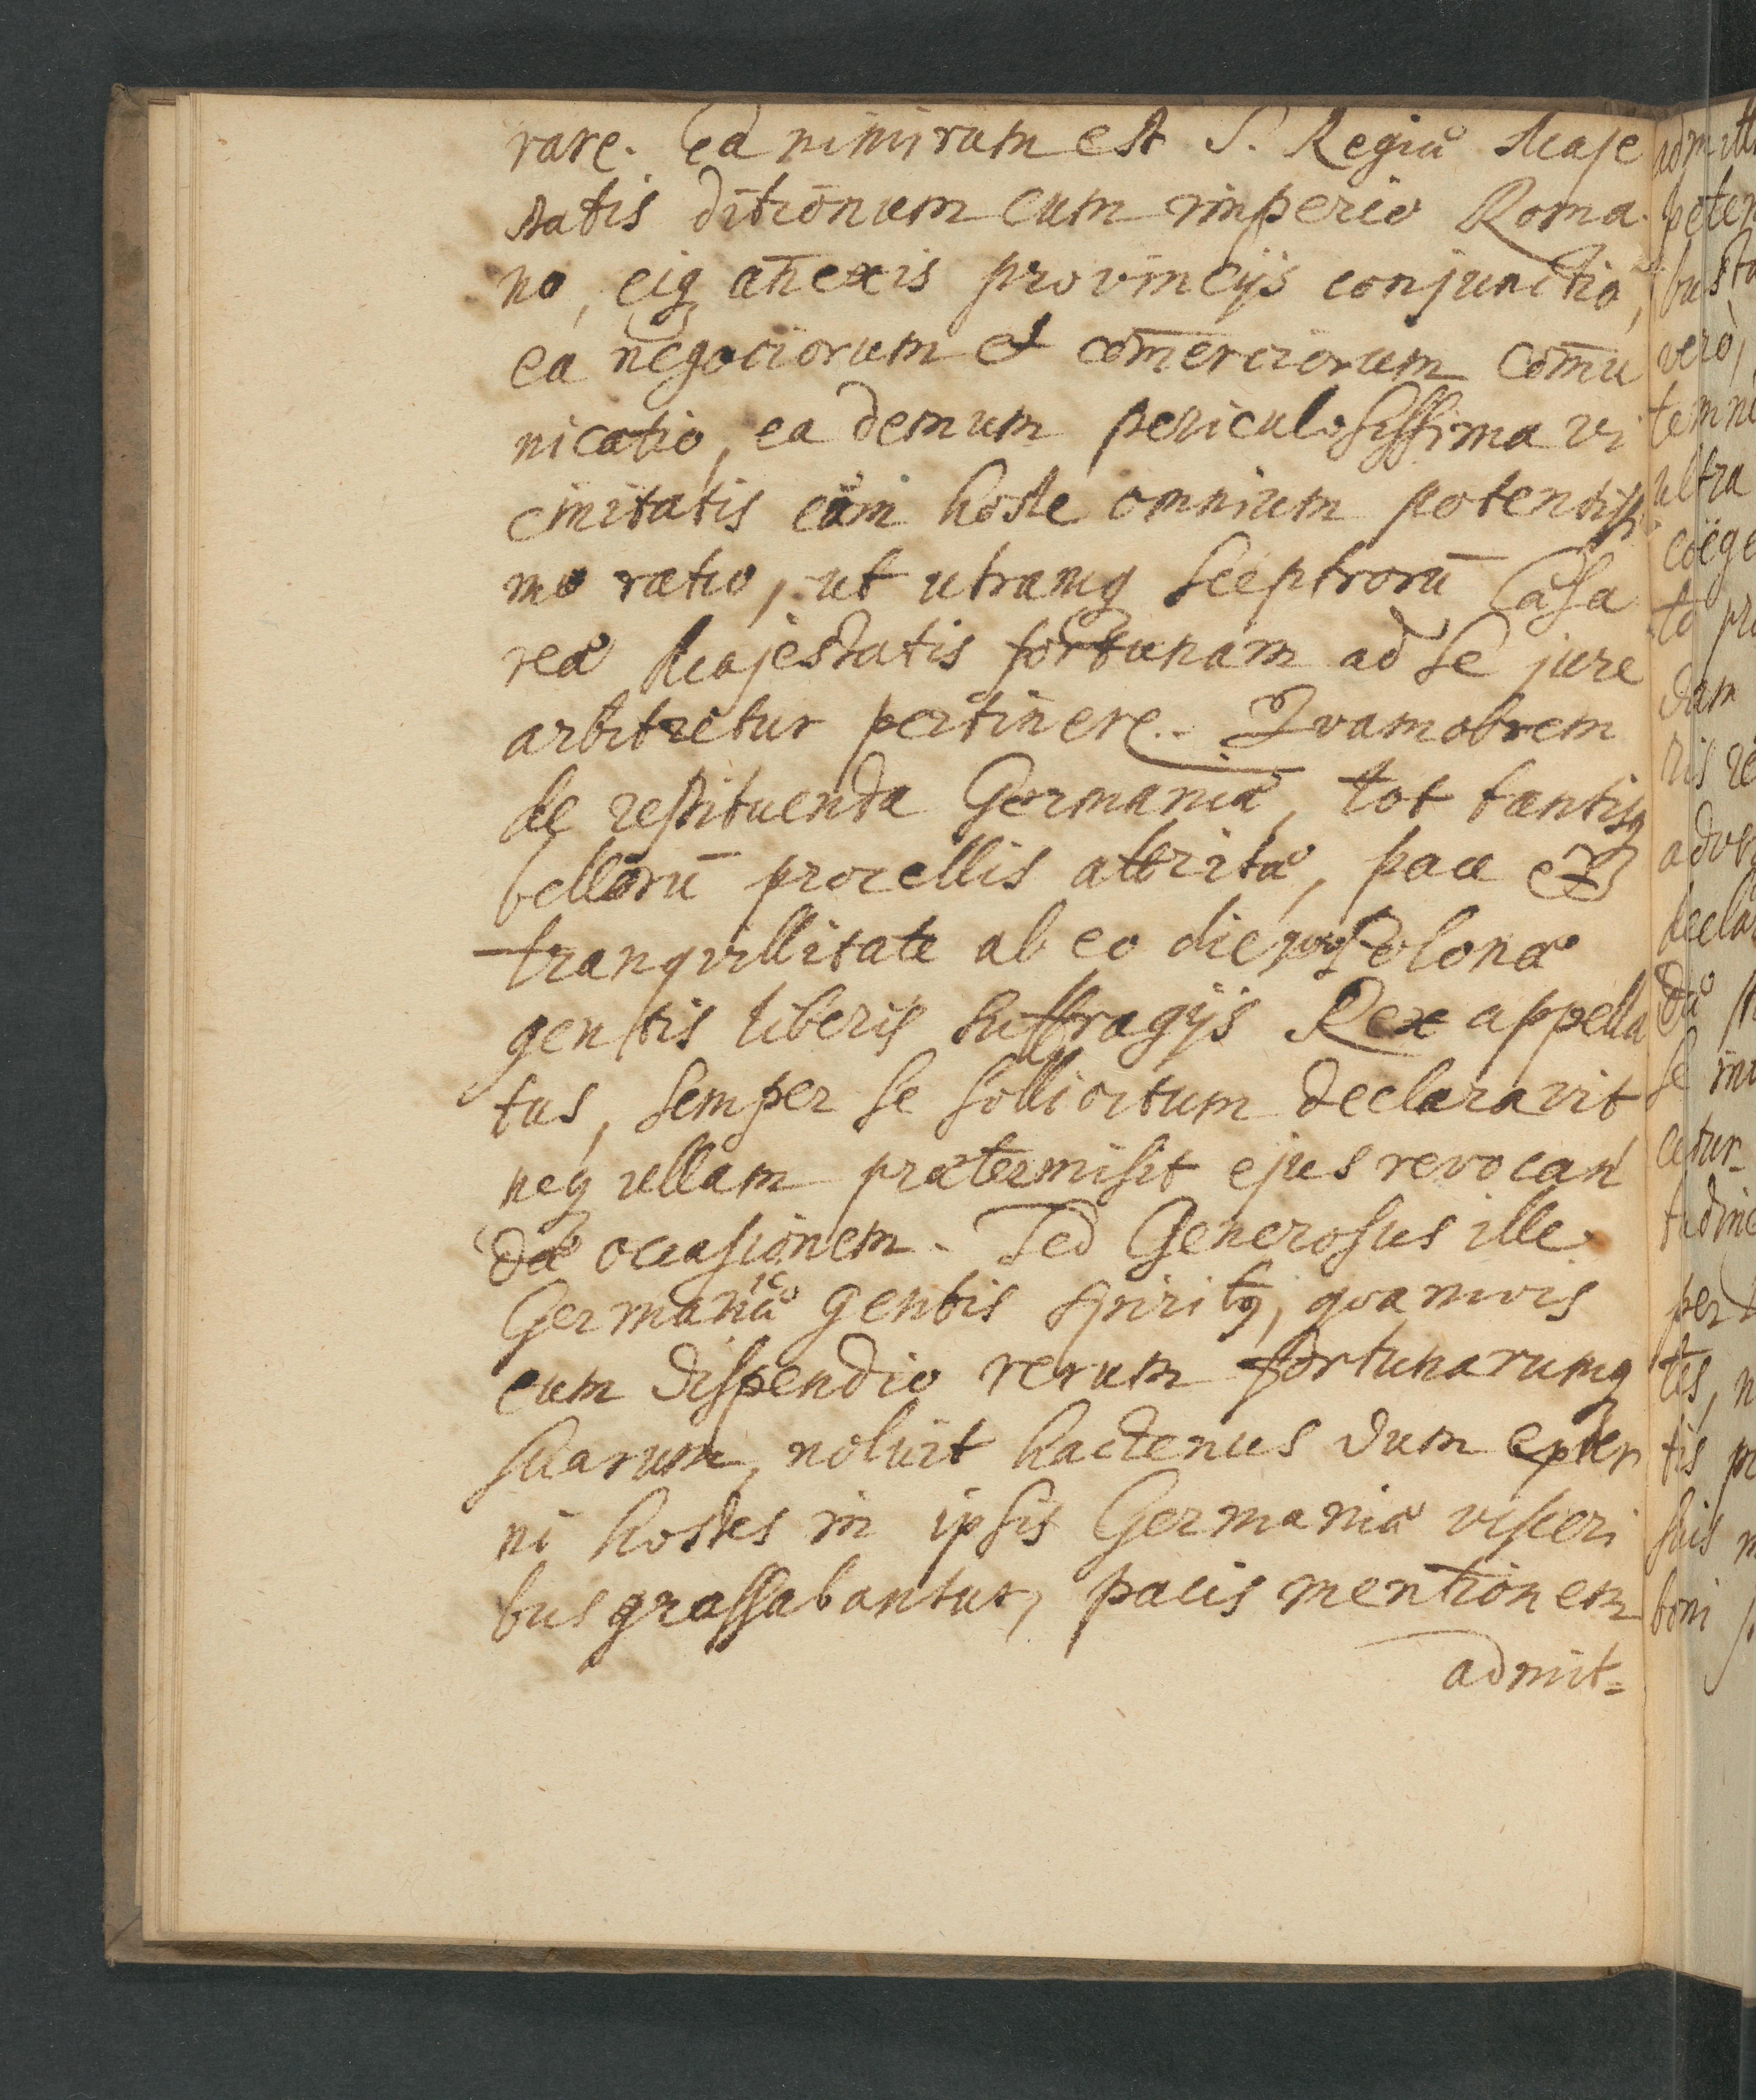 rare. Ea nimirum est S. Regiæ Maje
statis ditionum cum imperio Roma
no, eiq annexis provincijs conjunctio,
ea negociorum et com̄erciorum com̄u
nicatio, ea demum periculosissima vi
cinitatis cum hoste omnium potentiss:
mo ratio, ut utramq sceptrorū Cæsa
reæ Majestatis fortunam ad se jure
arbitretur pertinere. Qvamobrem
de restituenda Germaniæ, tot tantisq
bellorū procellis attritæ, pace et
tranqvillitate ab eo die qvo Polonæ
gentis liberis suffragijs Rex appella
tus, semper se sollicitum declaravit
neq ullam prætermisit ejus revocan
dæ occasionem. Sed Generosus ille
Germanicæ gentis spiritq, qvamvis
cum dispendio rerum fortunarumq
suarum, noluit hactenus dum exter
ni hostes in ipsis Germaniæ visceri
bus grassabantur, pacis mentionem
admit=